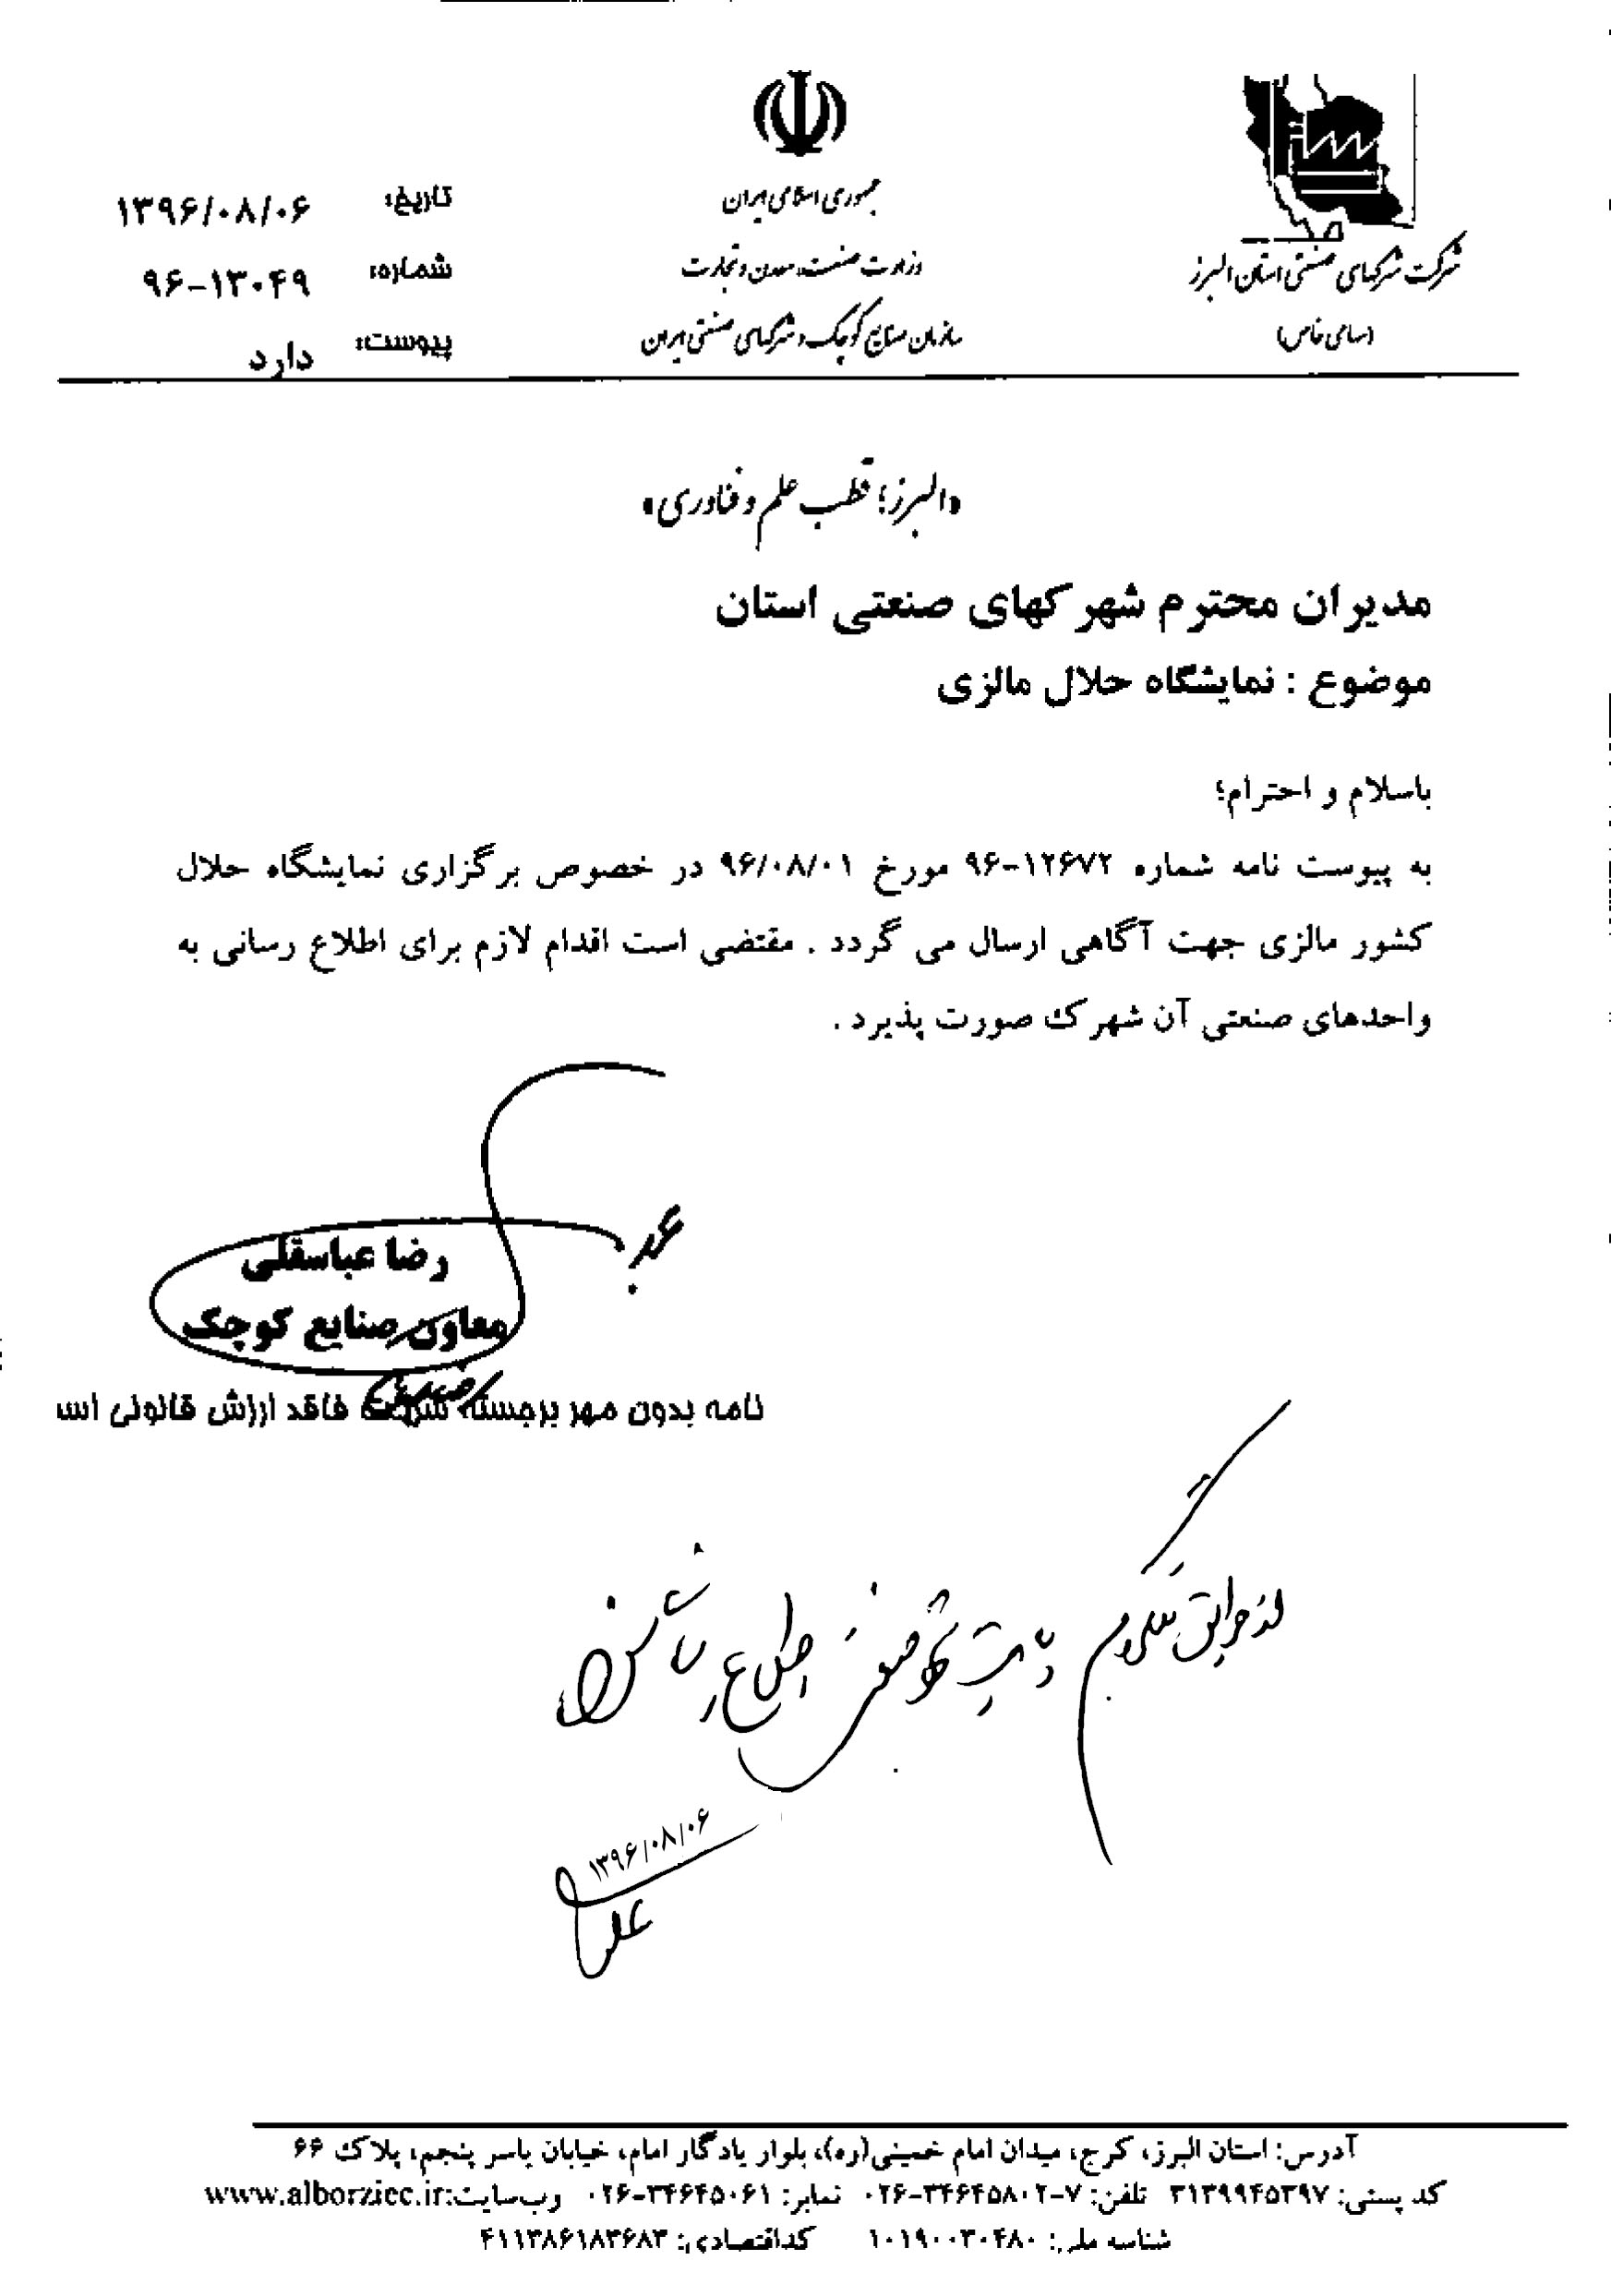 شرکت شهرکهای صنعتی استان البرز
(سهامی خاص)
جمهوری اسلامی ایران
وزارت صنعت، معدن و تجارت
سازمان صنایع کوچک و شهرکهای صنعتی ایران
تاریخ: ۱۳۹۶/۰۸/۰۶
شماره: ۹۶-۱۳۰۴۹
پیوست: دارد
«البرز؛ قطب علم و فناوری»
مدیران محترم شهرکهای صنعتی استان
موضوع : نمایشگاه حلال مالزی
باسلام و احترام؛
به پیوست نامه شماره ۱۲۶۷۲-۹۶ مورخ ۹۶/۰۸/۰۱ در خصوص برگزاری نمایشگاه حلال
کشور مالزی جهت آگاهی ارسال می گردد . مقتضی است اقدام لازم برای اطلاع رسانی به
واحدهای صنعتی آن شهرک صورت پذیرد .
رضا عباسقلی
معاون صنایع کوچک
نامه بدون مهر برجسته شرکت فاقد ارزش قانونی اس
اطلاع رسانی
۱۳۹۶/۰۸/۰۶
آدرس: استان البرز، کرج، میدان امام خمینی(ره)، بلوار یادگار امام، خیابان یاسر پنجم، پلاک ۶۶
کد پستی: ۳۱۳۹۹۴۵۳۹۷ تلفن: ۷-۳۴۶۴۵۸۰۲-۰۲۶ نمابر: ۳۴۶۴۵۰۶۱-۰۲۶ وب‌سایت:www.alborziec.ir
شناسه ملی: ۱۰۱۹۰۰۳۰۴۸۰ کداقتصادی: ۴۱۱۳۸۶۱۸۳۶۸۳